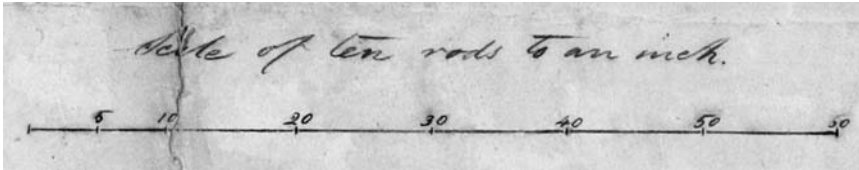 Scale of ten rods to an inch.
5 10 20 30 40 50 60